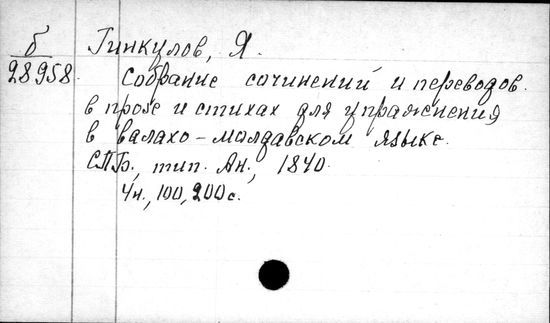 б
28958
Гинкулов, Я.
Собрание сочинений и переводов
в прозе и стихах для упражнения
в валахо-молдавском языке.
СПБ., тип. Ак., 1840.
4н., 100, 200 с.